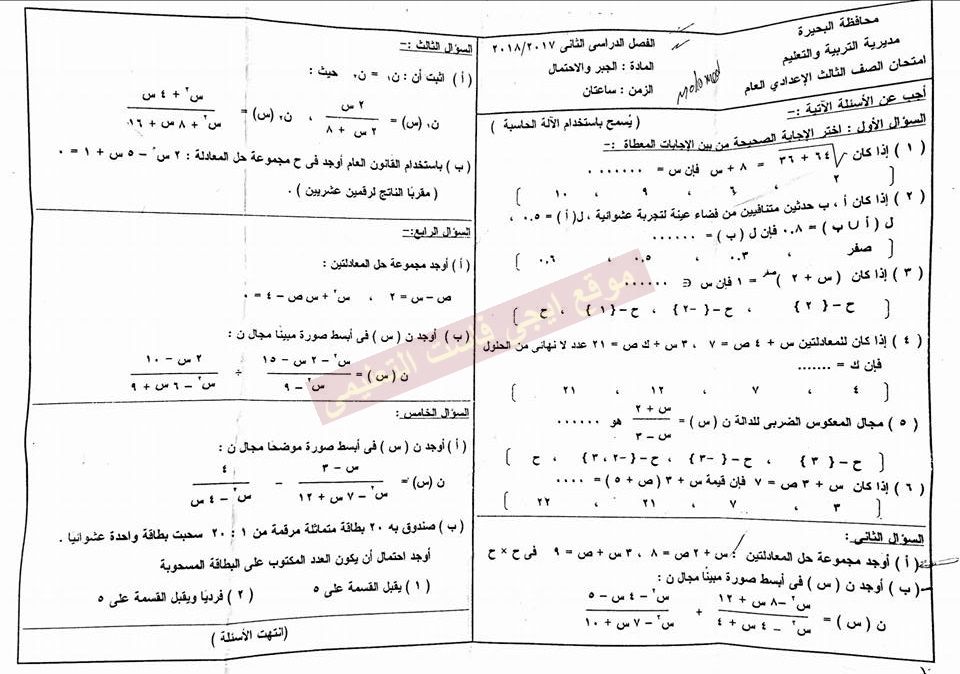 محافظة البحيرة
مديرية التربية والتعليم
امتحان الصف الثالث الإعدادي العام
الفصل الدراسى الثانى ٢٠١٨/٢٠١٧
المادة : الجبر والاحتمال
الزمن : ساعتان
أجب عن الأسئلة الآتية :-
( يُسمح باستخدام الآلة الحاسبة )
السؤال الأول : اختر الإجابة الصحيحة من بين الإجابات المعطاة :-
( ١ ) إذا كان √(٦٤ + ٣٦) = ٨ + س فإن س = ......
{ ٢ ، ٦ ، ٩ ، ١٠ }
( ٢ ) إذا كان أ ، ب حدثين متنافيين من فضاء عينة لتجربة عشوائية ، ل( أ ) = ٠.٥ ،
ل ( أ ∪ ب ) = ٠.٨ فإن ل ( ب ) = ......
{ صفر ، ٠.٣ ، ٠.٥ ، ٠.٦ }
( ٣ ) إذا كان ( س + ٢ )صفر = ١ فإن س ∋ ......
{ ح – { ٢ } ، ح – { -٢ } ، ح – { ١ } ، ح }
( ٤ ) إذا كان للمعادلتين س + ٤ ص = ٧ ، ٣ س + ك ص = ٢١ عدد لا نهائى من الحلول
فإن ك = .......
{ ٤ ، ٧ ، ١٢ ، ٢١ }
( ٥ ) مجال المعكوس الضربى للدالة ن ( س ) = (س + ٢)/(س – ٣) هو ......
{ ح – { ٣ } ، ح – { -٣ } ، ح – { -٢ ، ٣ } ، ح }
( ٦ ) إذا كان س + ٣ ص = ٧ فإن قيمة س + ٣ ( ص + ٥ ) = ....
{ ٣ ، ٧ ، ٢١ ، ٢٢ }
السؤال الثانى :
( أ ) أوجد مجموعة حل المعادلتين : س + ٢ ص = ٨ ، ٣ س + ص = ٩ فى ح × ح
( ب ) أوجد ن ( س ) فى أبسط صورة مبينًا مجال ن :
ن ( س ) = (س٢ – ٨ س + ١٢)/(س٢ – ٤ س + ٤) + (س٢ – ٤ س – ٥)/(س٢ – ٧ س + ١٠)
السؤال الثالث :-
( أ ) اثبت أن : ن١ = ن٢ حيث :
ن١ (س) = ٢ س/(٢ س + ٨) ، ن٢ (س) = (س٢ + ٤ س)/(س٢ + ٨ س + ١٦)
( ب ) باستخدام القانون العام أوجد فى ح مجموعة حل المعادلة : ٢ س٢ – ٥ س + ١ = ٠
( مقربًا الناتج لرقمين عشريين ) .
السؤال الرابع :-
( أ ) أوجد مجموعة حل المعادلتين :
ص – س = ٢ ، س٢ + س ص – ٤ = ٠
( ب ) أوجد ن ( س ) فى أبسط صورة مبينًا مجال ن :
ن ( س ) = (س٢ – ٢ س – ١٥)/(س٢ – ٩) ÷ (٢ س – ١٠)/(س٢ – ٦ س + ٩)
السؤال الخامس :
( أ ) أوجد ن ( س ) فى أبسط صورة موضحًا مجال ن :
ن (س) = (س – ٣)/(س٢ – ٧ س + ١٢) – ٤/(س٢ – ٤ س)
( ب ) صندوق به ٢٠ بطاقة متماثلة مرقمة من ١ : ٢٠ سحبت بطاقة واحدة عشوائيا .
أوجد احتمال أن يكون العدد المكتوب على البطاقة المسحوبة
( ١ ) يقبل القسمة على ٥ ( ٢ ) فرديًا ويقبل القسمة على ٥
(انتهت الأسئلة )
موقع ايجي فاست التعليمى